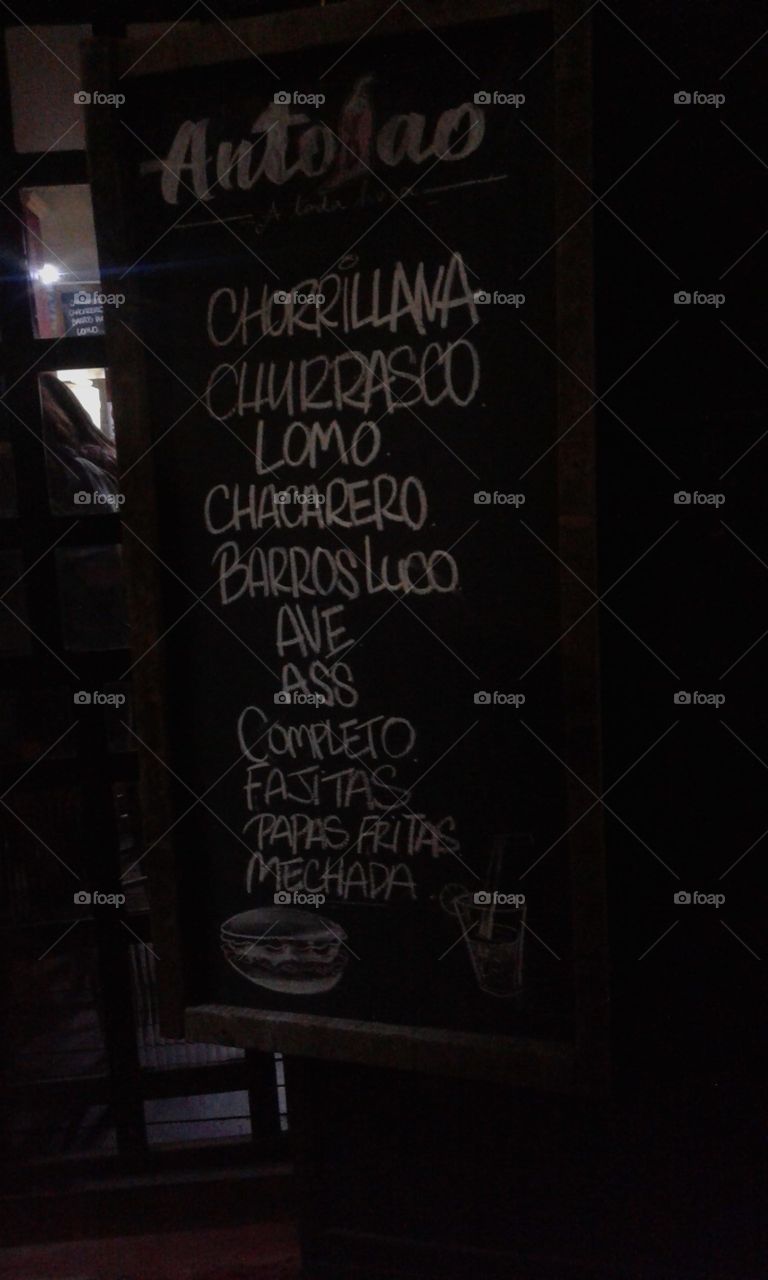 Antojao
A toda hora
CHORRILLANA
CHURRASCO
LOMO
CHACARERO
BARROS LUCO
AVE
ASS
COMPLETO
FAJITAS
PAPAS FRITAS
MECHADA
CHACARERO
BARROS
LOMO
foap